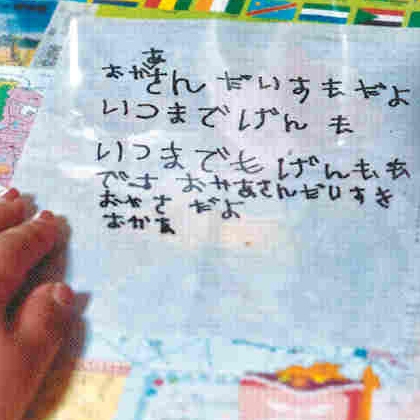 おかあさん だいすきだよ
いつまで げんき
いつまでも げんきき
です おかあさんだいすき
おかさ だよ
おかあ